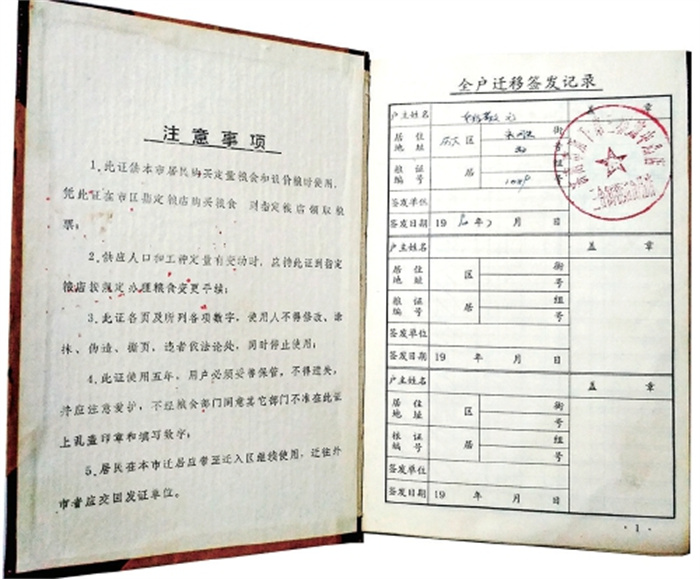 注意事项
1．此证供本市居民购买定量粮食和议价粮时使用，
凭此证在市区指定粮店购买粮食 到指定粮店领取粮
票；
2．供应人口和工种定量有变动时，应持此证到指定
粮店按规定办理粮食变更手续；
3．此证各页及所列各项数字，使用人不得修改、涂
抹、伪造、撕页，违者依法论处，同时停止使用；
4．此证使用五年，用户必须妥善保管，不得遗失，
并应注意爱护，不经粮食部门同意其它部门不准在此证
上乱盖印章和填写数字；
5．居民在本市迁居应带至迁入区继续使用，迁往外
市者应交回发证单位。
全户迁移签发记录
户主姓名 盖 章
居住地址 区 街
号
粮证编号 居
签发单位
签发日期 19 年 月 日
户主姓名 盖 章
居住地址 区 街
号
粮证编号 居 组
号
签发单位
签发日期 19 年 月 日
户主姓名 盖 章
居住地址 区 街
号
粮证编号 居 组
号
签发单位
签发日期 19 年 月 日
·1·